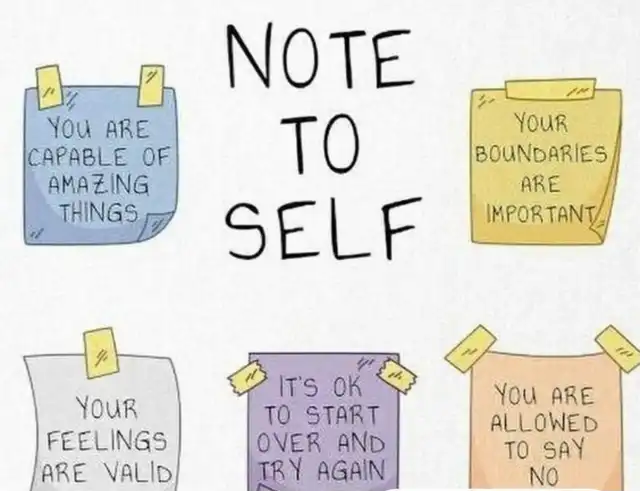 NOTE
TO
SELF
YOU ARE
CAPABLE OF
AMAZING
THINGS
YOUR
BOUNDARIES
ARE
IMPORTANT
YOUR
FEELINGS
ARE VALID
IT'S OK
TO START
OVER AND
TRY AGAIN
YOU ARE
ALLOWED
TO SAY
NO